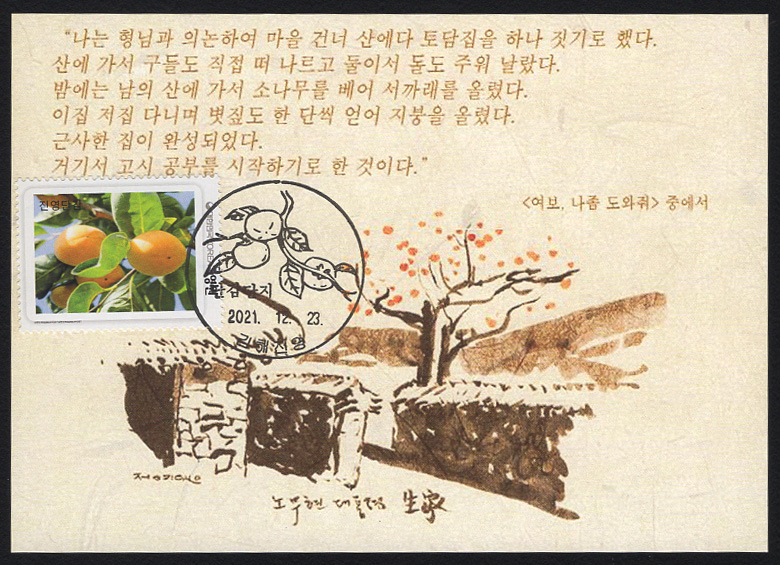 “나는 형님과 의논하여 마을 건너 산에다 토담집을 하나 짓기로 했다.
산에 가서 구들도 직접 떠 나르고 둘이서 돌도 주워 날랐다.
밤에는 남의 산에 가서 소나무를 베어 서까래를 올렸다.
이집 저집 다니며 볏짚도 한 단씩 얻어 지붕을 올렸다.
근사한 집이 완성되었다.
거기서 고시 공부를 시작하기로 한 것이다.”
<여보, 나좀 도와줘> 중에서
진영단감
단감단지
2021. 12. 23.
김해진영
노무현 대통령 生家